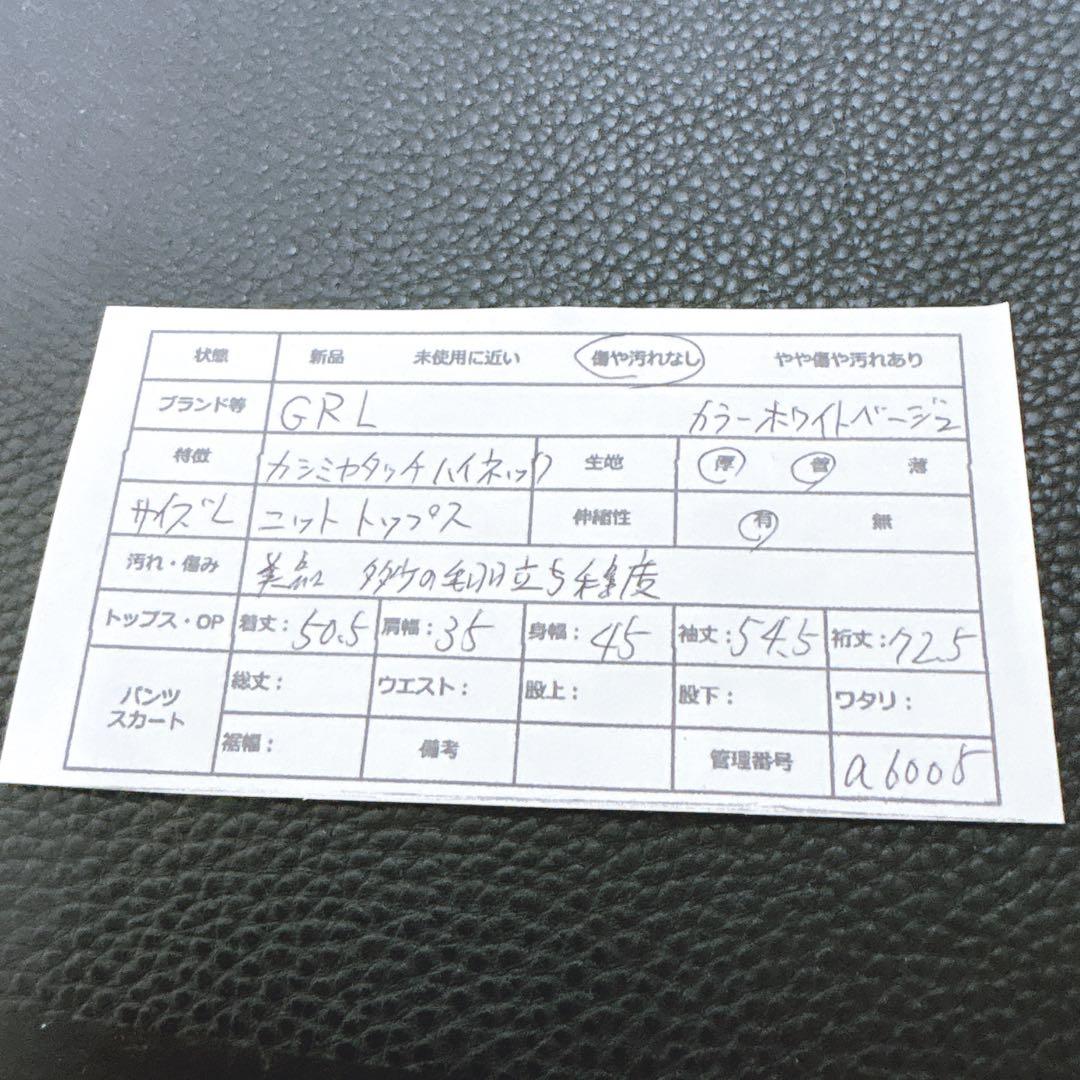 状態 新品 未使用に近い 傷や汚れなし やや傷や汚れあり
ブランド等 GRL カラーホワイトベージュ
特徴 カシミヤタッチハイネック 生地 厚 普 薄
サイズL ニットトップス 伸縮性 有 無
汚れ・傷み 美品 多少の毛羽立ち程度
トップス・OP 着丈:50.5 肩幅:35 身幅:45 袖丈:54.5 裄丈:72.5
パンツ スカート 総丈: ウエスト: 股上: 股下: ワタリ:
裾幅: 備考 管理番号 a6005